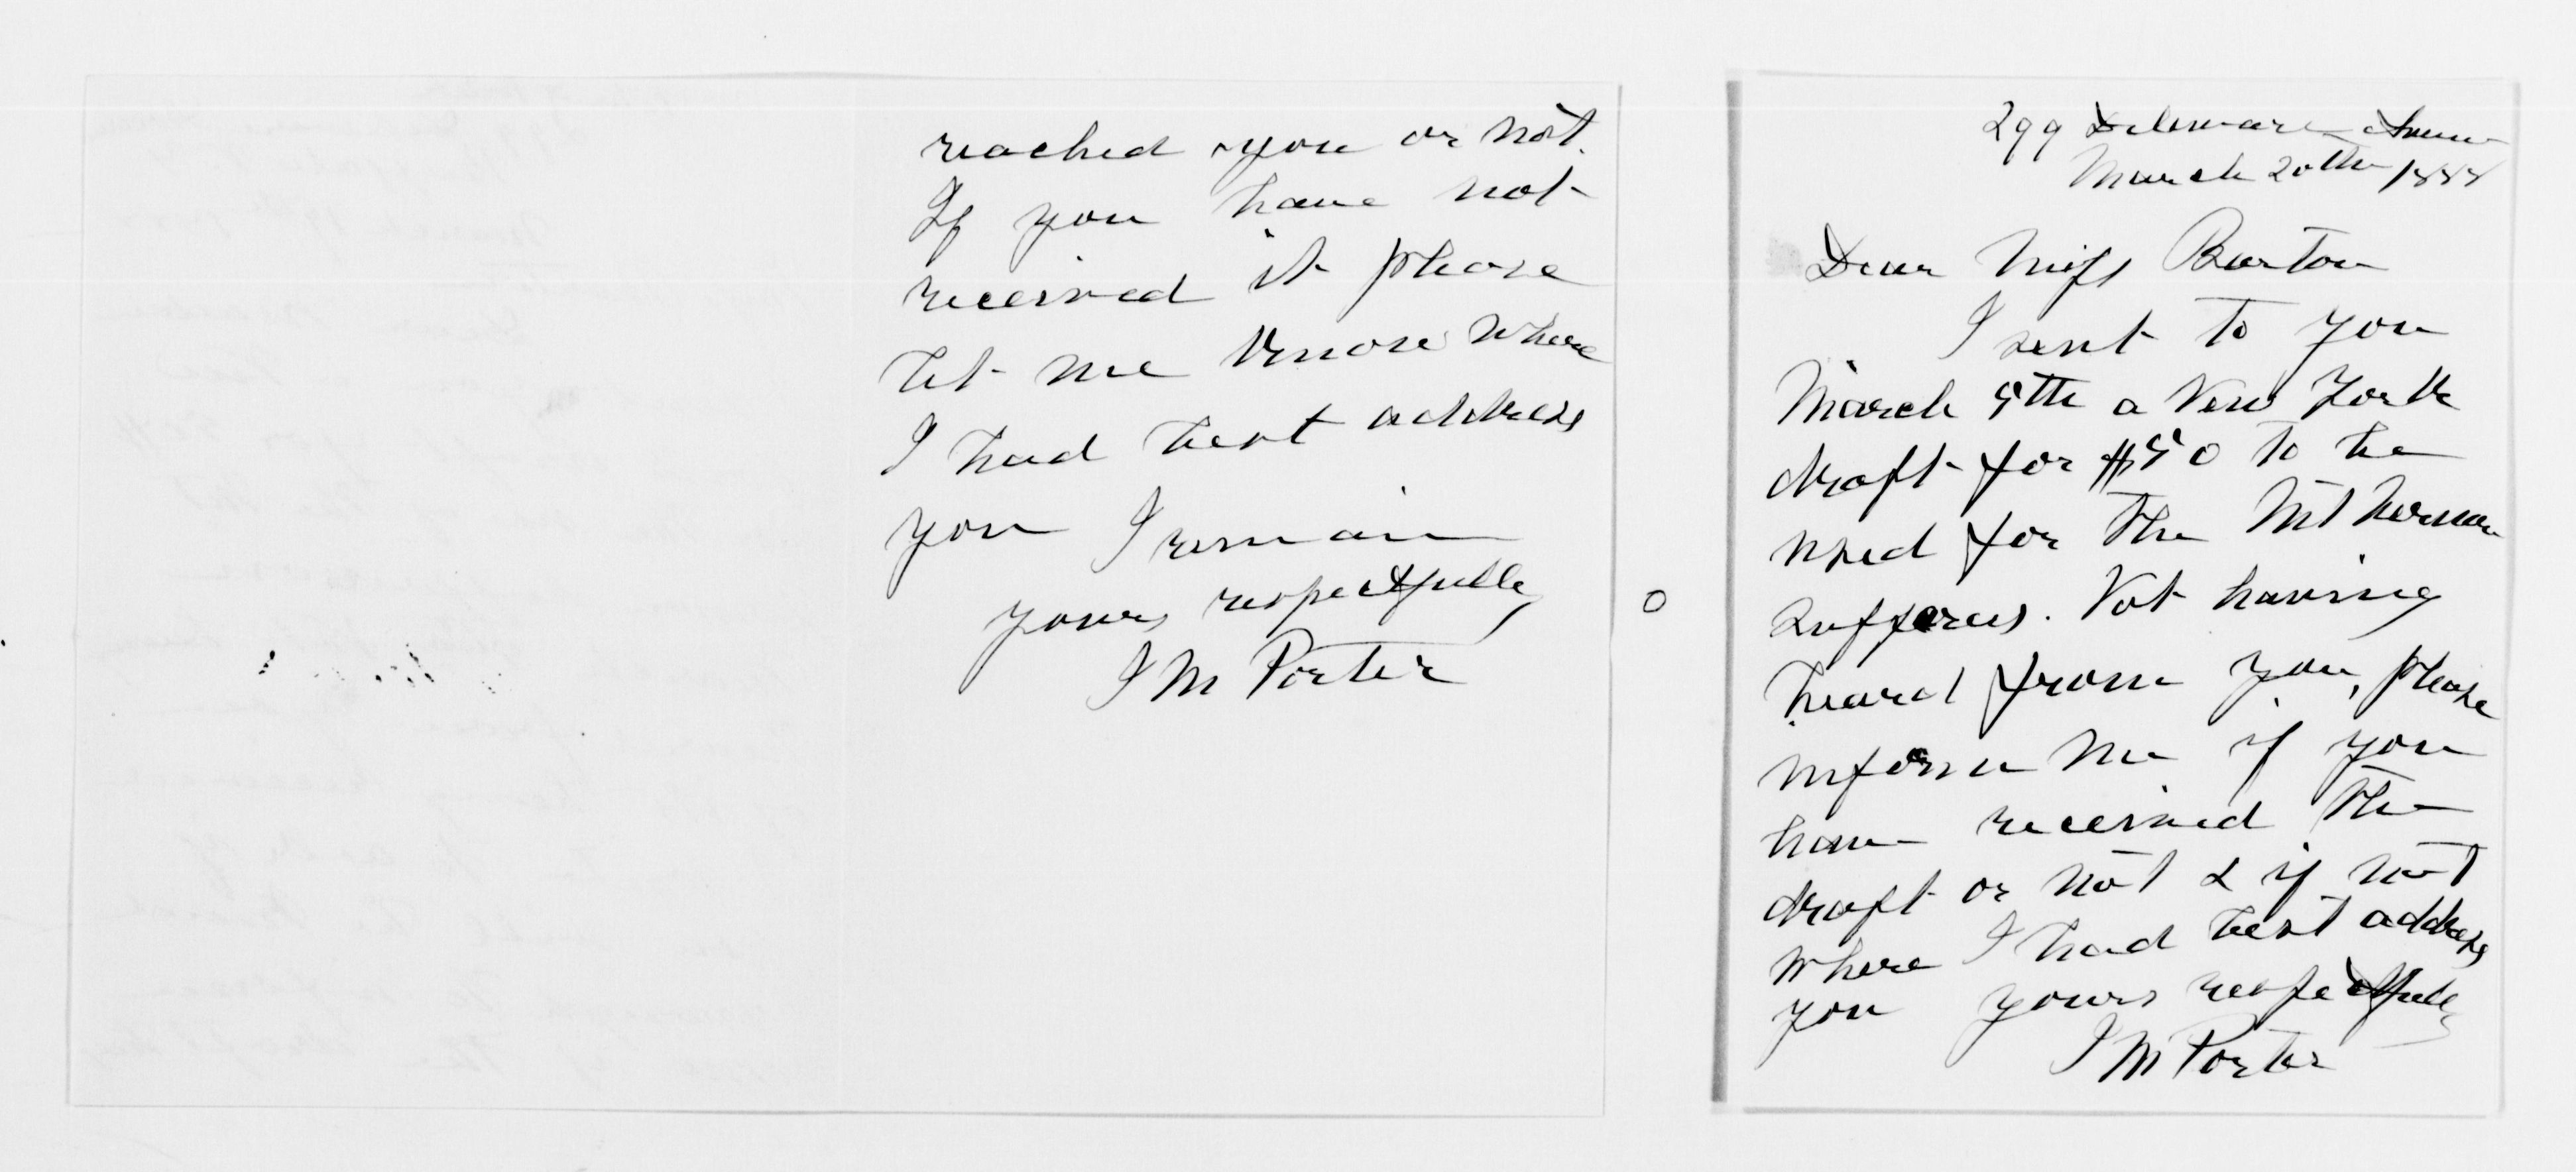 reached you or not.
If you have not
received it please
let me know where
I had best address
you I remain
yours respectfully
I M Porter
299 Delaware Avenue
March 20th 1888
Dear Miss Barton
I sent to you
March 5th a New York
draft for $50 to be
used for the Mt Vernon
sufferers. Not having
heard from you, please
inform me if you
have received the
draft or not & if not
where I had best address
you yours respectfully
I M Porter